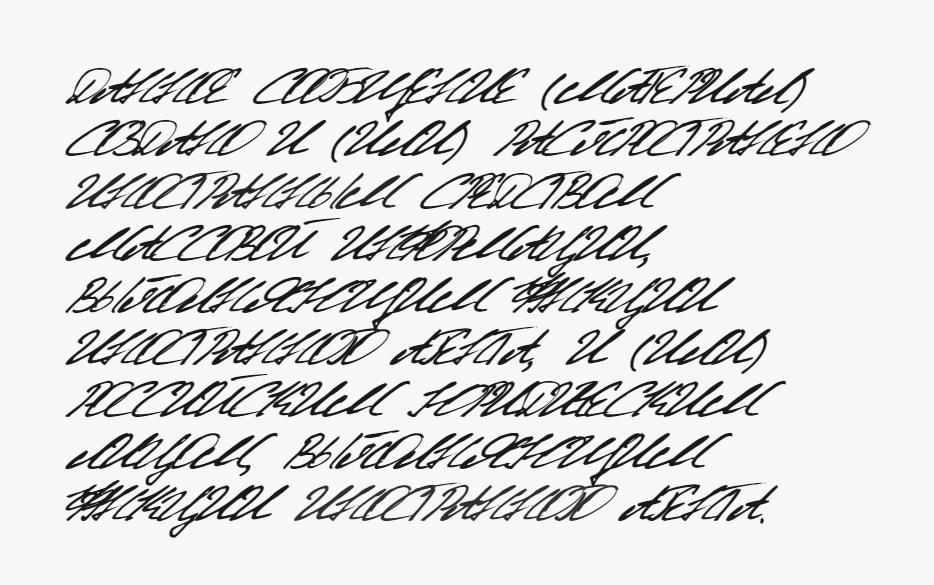 ДАННОЕ СООБЩЕНИЕ (МАТЕРИАЛ)
СОЗДАНО И (ИЛИ) РАСПРОСТРАНЕНО
ИНОСТРАННЫМ СРЕДСТВОМ
МАССОВОЙ ИНФОРМАЦИИ,
ВЫПОЛНЯЮЩИМ ФУНКЦИИ
ИНОСТРАННОГО АГЕНТА, И (ИЛИ)
РОССИЙСКИМ ЮРИДИЧЕСКИМ
ЛИЦОМ, ВЫПОЛНЯЮЩИМ
ФУНКЦИИ ИНОСТРАННОГО АГЕНТА.